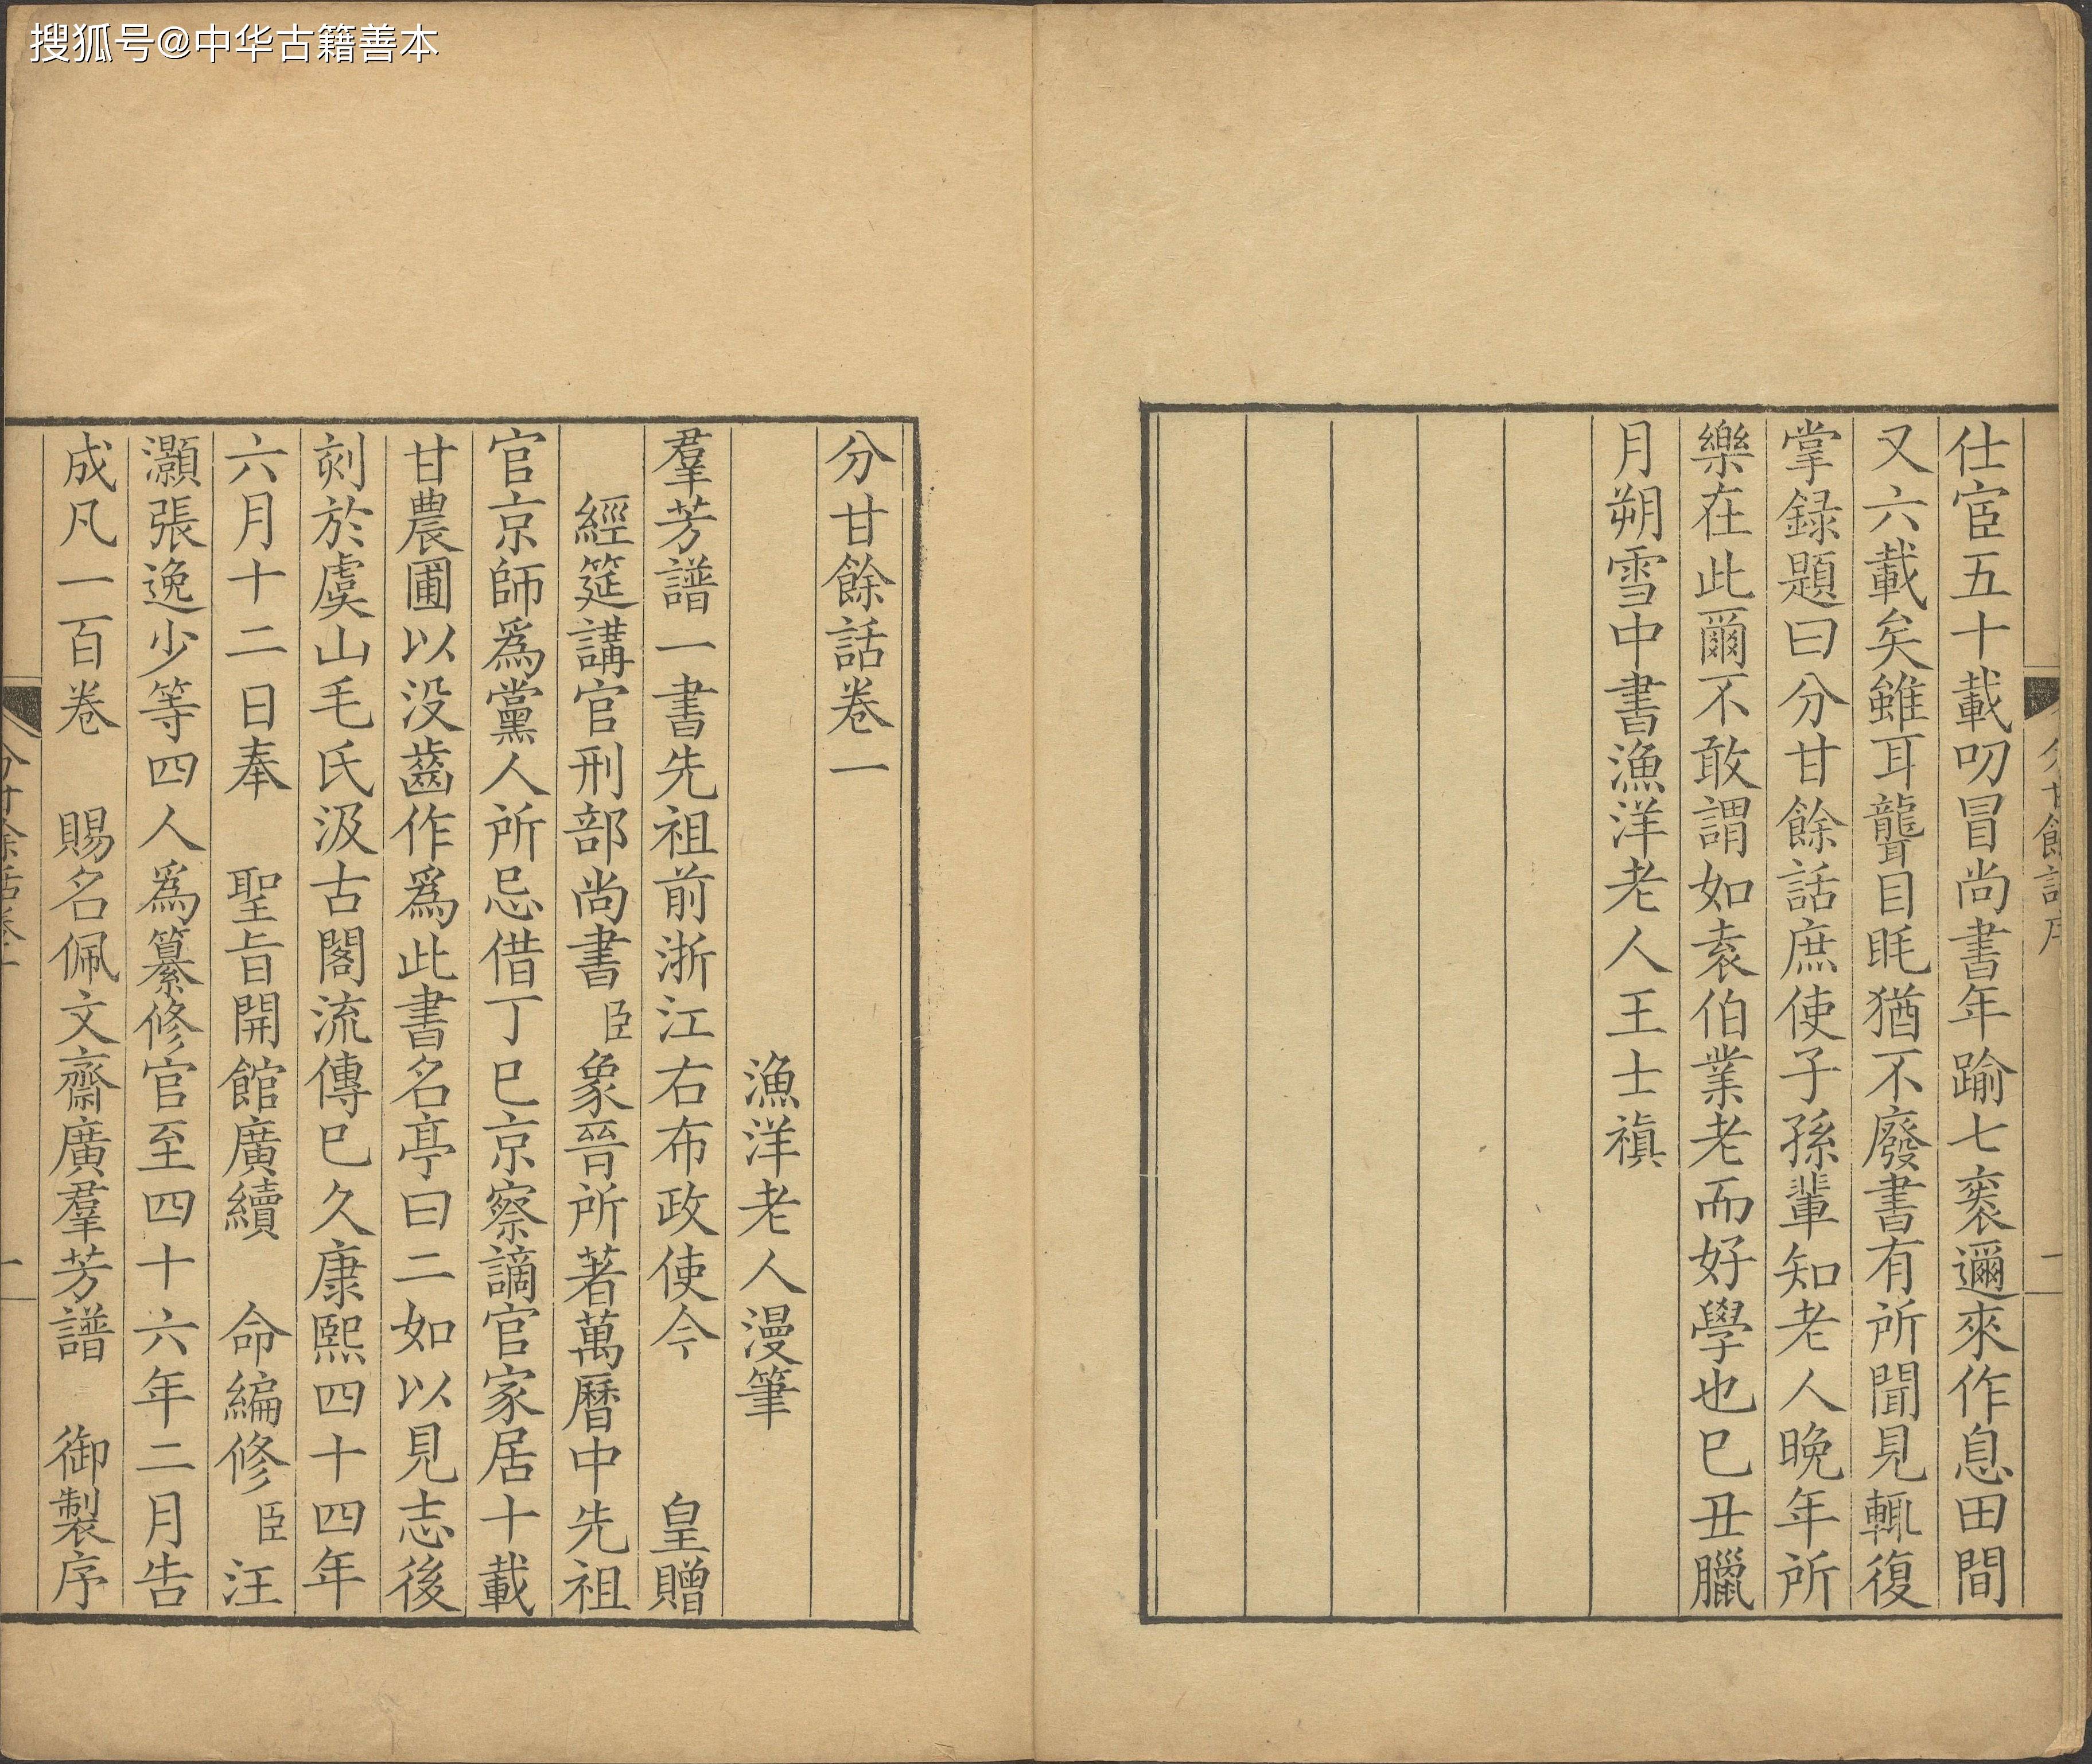 搜狐号@中华古籍善本
仕宦五十載叨冒尚書年踰七袠邇來作息田間
又六載矣雖耳聾目眊猶不廢書有所聞見輒復
掌録題曰分甘餘話庶使子孫輩知老人晚年所
樂在此爾不敢謂如袁伯業老而好學也巳丑臘
月朔雪中書漁洋老人王士禛
分甘餘話卷一
漁洋老人漫筆
羣芳譜一書先祖前浙江右布政使今　　皇贈
經筵講官刑部尚書臣象晉所著萬曆中先祖
官京師爲黨人所忌借丁巳京察謫官家居十載
甘農圃以没齒作爲此書名亭曰二如以見志後
刻於虞山毛氏汲古閣流傳巳久康熙四十四年
六月十二日奉　聖旨開館廣續　命編修臣汪
灝張逸少等四人爲纂修官至四十六年二月告
成凡一百卷　賜名佩文齋廣羣芳譜　御製序